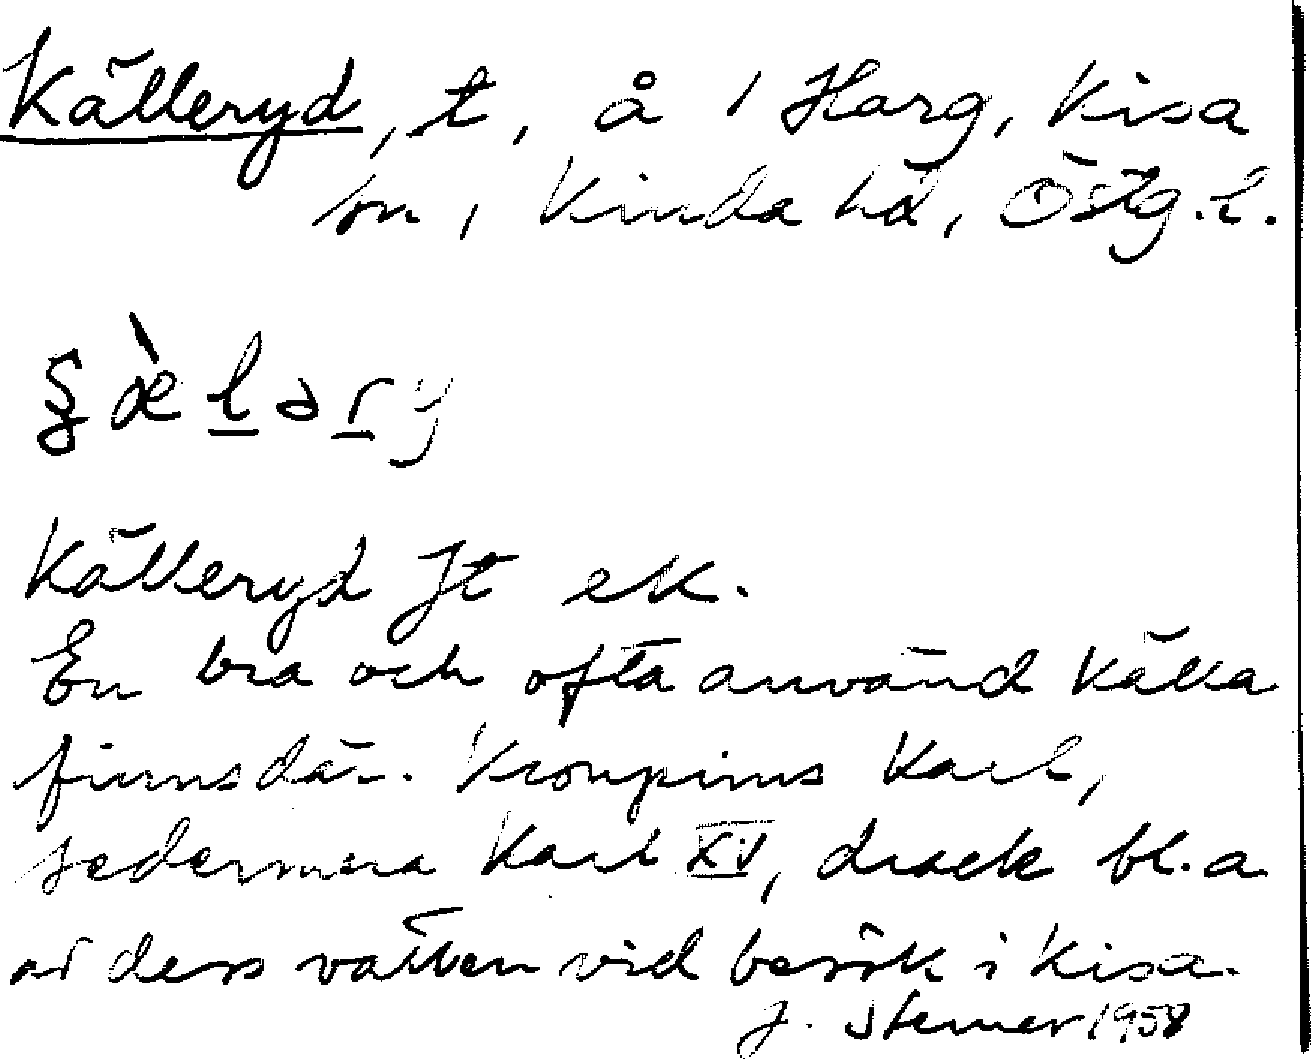 Källeryd, t, å 1 Harg, Kisa
sn, Kinda hd, Östg.l.
Källeryd Jt ek.
En bra och ofta använd källa
finns där. Kronprins Karl,
sedermera Karl XV, drack bl.a
av dess vatten vid besök i Kisa.
J. 1958